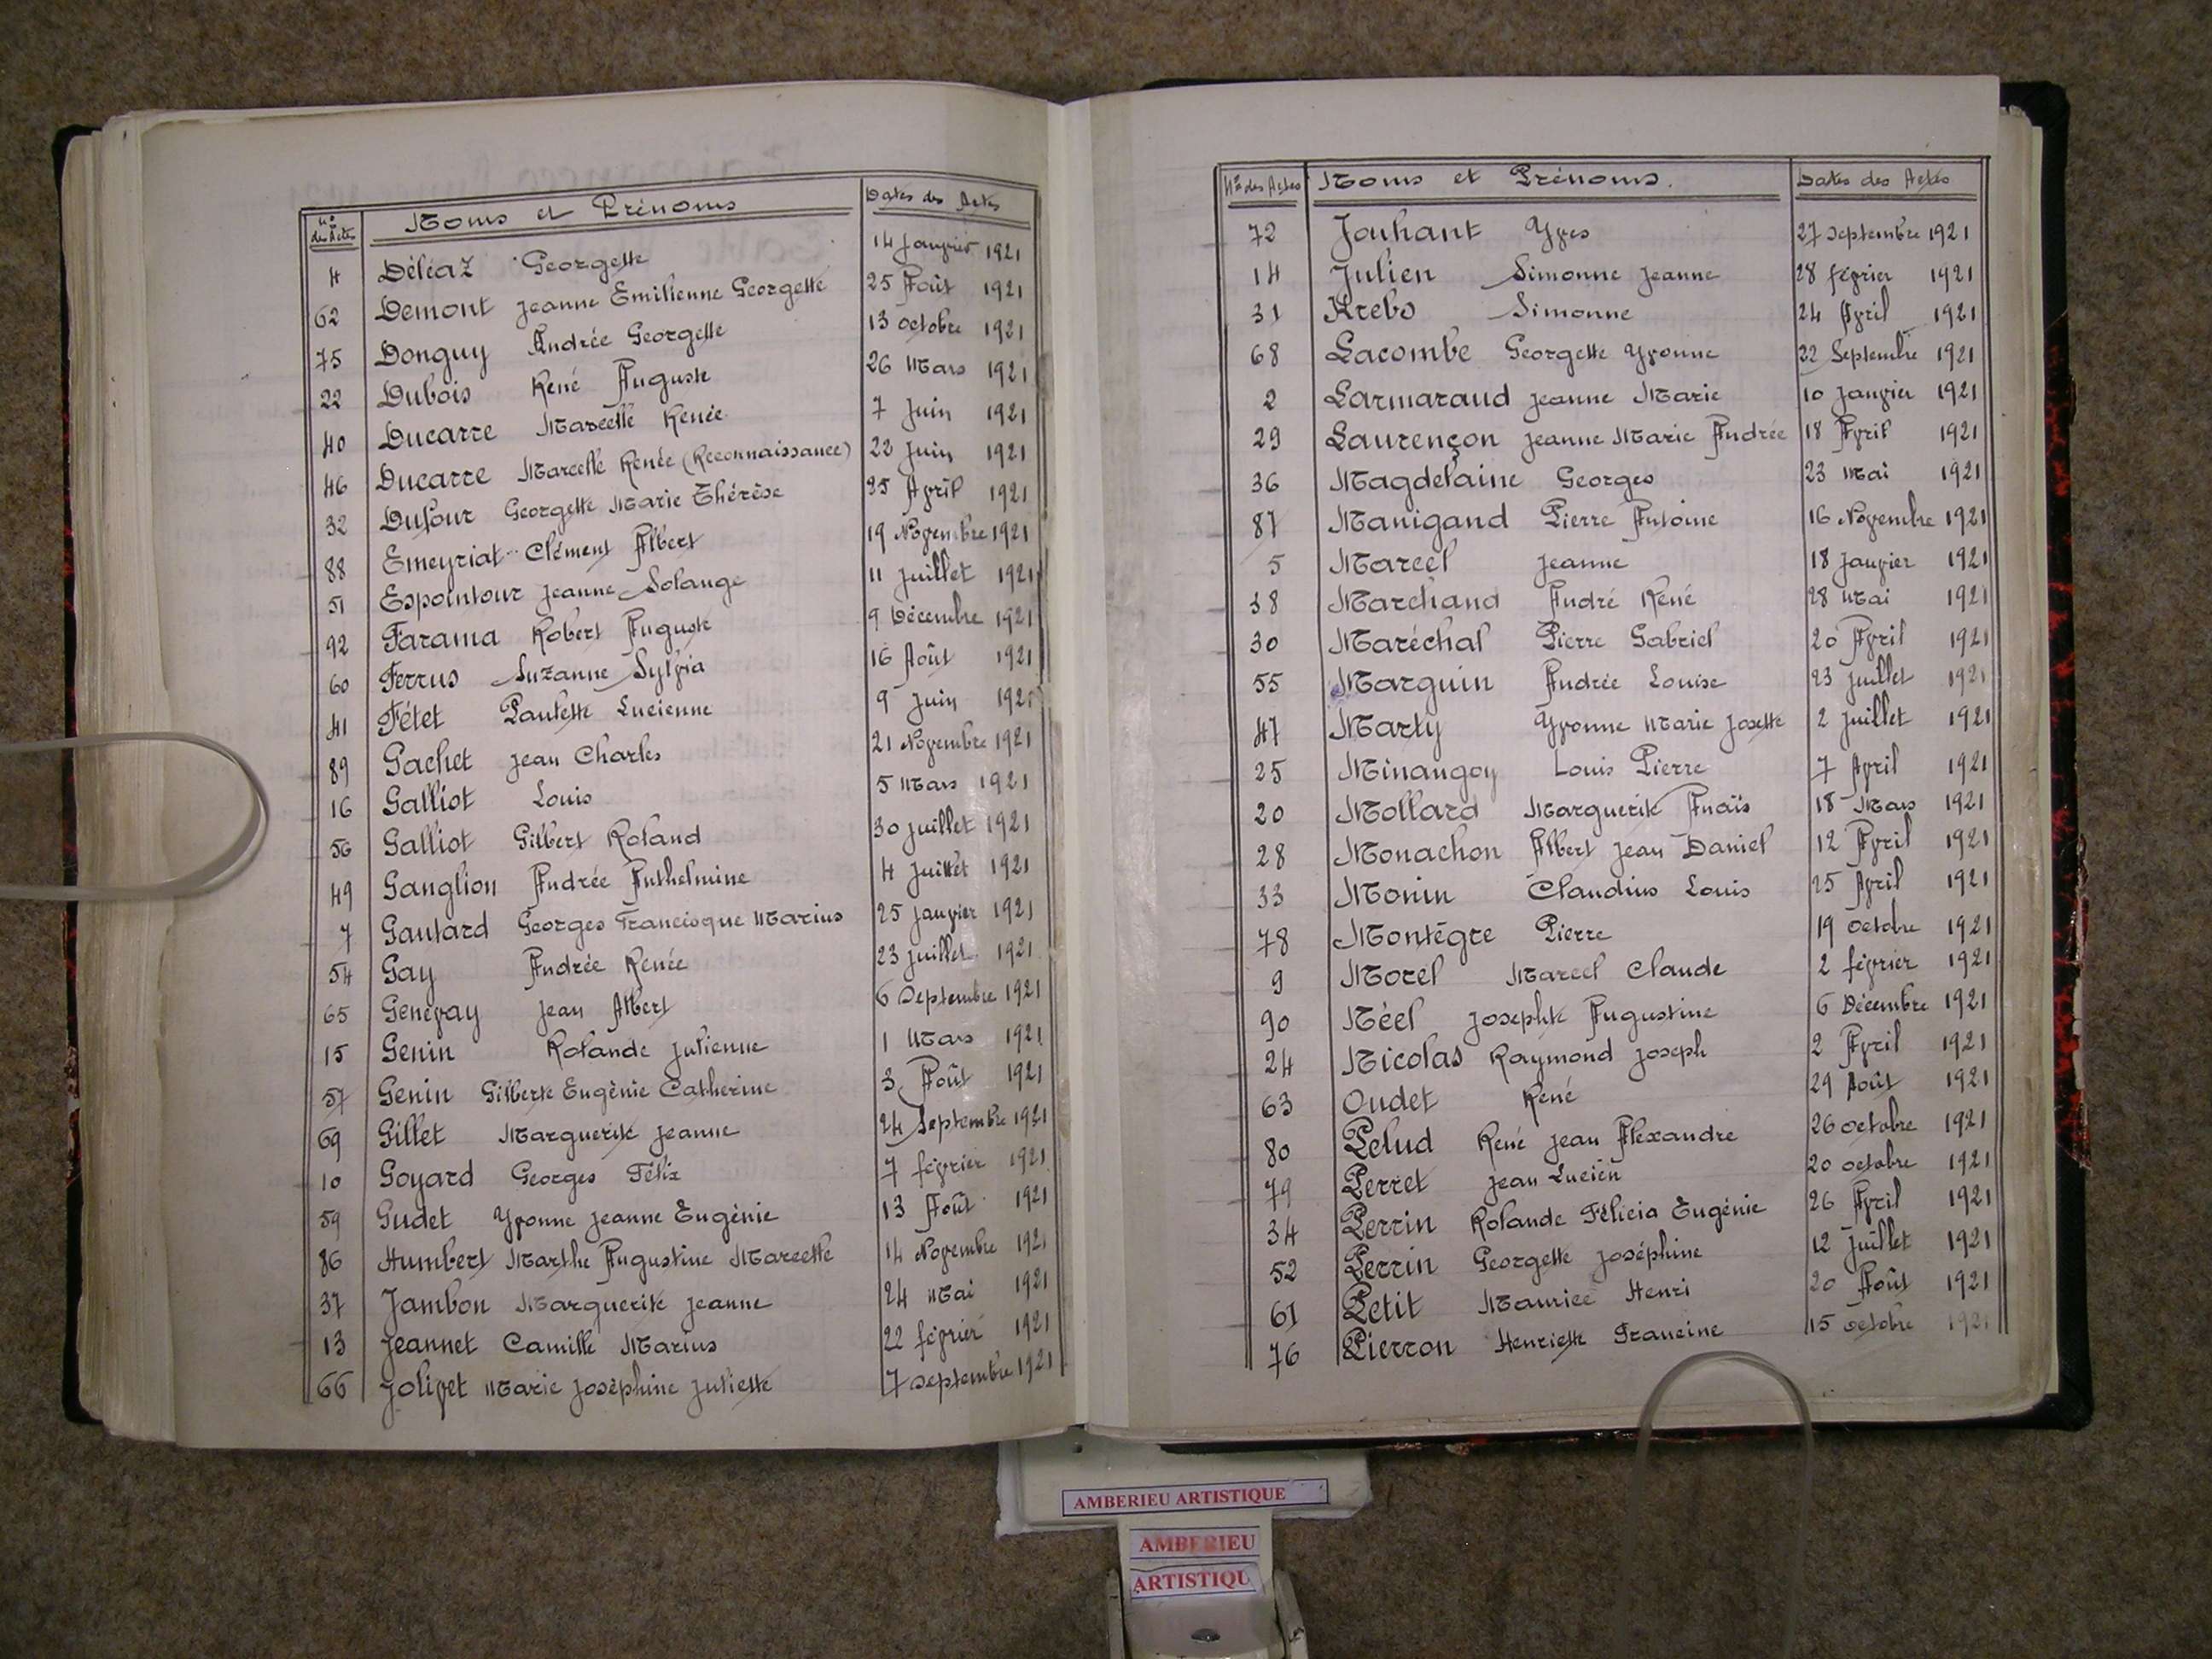 Nos des Actes Noms et Prénoms Dates des Actes
4 Déléaz Georgette 14 janvier 1921
62 Demont Jeanne Emilienne Georgette 25 Août 1921
75 Donguy Andrée Georgette 13 octobre 1921
22 Dubois René Auguste 26 Mars 1921
40 Ducarre Marcelle Renée 7 Juin 1921
46 Ducarre Marcelle Renée (Reconnaissance) 22 Juin 1921
32 Dufour Georgette Marie Thérèse 25 Avril 1921
88 Emeyriat Clément Albert 19 Novembre 1921
51 Espointour Jeanne Solange 11 Juillet 1921
92 Farama Robert Auguste 9 Décembre 1921
60 Ferrus Suzanne Sylvia 16 Août 1921
41 Fétet Paulette Lucienne 9 Juin 1921
89 Gachet Jean Charles 21 Novembre 1921
16 Galliot Louis 5 Mars 1921
56 Galliot Gilbert Roland 30 juillet 1921
49 Ganglion Andrée Anthelmine 4 Juillet 1921
7 Gautard Georges Francisque Marius 25 janvier 1921
54 Gay Andrée Renée 23 juillet 1921
65 Genevay Jean Albert 6 Septembre 1921
15 Genin Rolande Julienne 1 Mars 1921
57 Genin Gilberte Eugènie Catherine 3 Août 1921
69 Gillet Marguerite Jeanne 24 Septembre 1921
10 Goyard Georges Félix 7 février 1921
59 Gudet Yvonne Jeanne Eugènie 13 Août 1921
86 Humbert Marthe Augustine Marcelle 14 Novembre 1921
37 Jambon Marguerite Jeanne 24 Mai 1921
13 Jeannet Camille Marius 22 février 1921
66 Jolivet Marie Joséphine Juliette 7 septembre 1921
Nos des Actes Noms et Prénoms. Dates des Actes
72 Jouhant Yves 27 septembre 1921
14 Julien Simonne Jeanne 28 février 1921
31 Krebs Simonne 24 Avril 1921
68 Lacombe Georgette Yvonne 22 Septembre 1921
2 Larmaraud Jeanne Marie 10 Janvier 1921
29 Laurençon Jeanne Marie Andrée 18 Avril 1921
36 Magdelaine Georges 23 Mai 1921
87 Manigand Pierre Antoine 16 Novembre 1921
5 Marcel Jeanne 18 janvier 1921
38 Marchand André René 28 Mai 1921
30 Maréchal Pierre Gabriel 20 Avril 1921
55 Marguin Andrée Louise 23 juillet 1921
47 Marty Yvonne Marie Josette 2 Juillet 1921
25 Minangoy Louis Pierre 7 Avril 1921
20 Mollard Marguerite Anaïs 18 Mars 1921
28 Monachon Albert Jean Daniel 12 Avril 1921
33 Monin Claudius Louis 25 Avril 1921
78 Montégre Pierre 19 octobre 1921
9 Morel Marcel Claude 2 février 1921
90 Néel Josephte Augustine 6 Décembre 1921
24 Nicolas Raymond Joseph 2 Avril 1921
63 Oudet René 29 Août 1921
80 Pelud René Jean Alexandre 26 octobre 1921
79 Perret Jean Lucien 20 octobre 1921
34 Perrin Rolande Félicia Eugénie 26 Avril 1921
52 Perrin Georgette Joséphine 12 juillet 1921
61 Petit Maurice Henri 20 Août 1921
76 Pierron Henriette Francine 15 octobre 1921
AMBERIEU ARTISTIQUE
AMBERIEU
ARTISTIQU